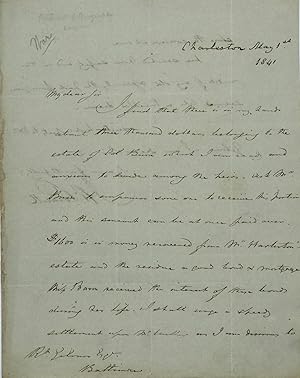 Charleston May 1st
1841
My dear Sir
I find that there is in my hands
about three thousand dollars belonging to the
estate of Col Burr which I am ready and
anxious to divide among the heirs. Ask Mr
to empower some one to receive his portion
and the amount can be at once paid over.
$1600 is in money recovered from Mr Harleston's
estate and the residue a good bond & mortgage
Miss received the interest of these bonds
during her life. I shall urge a speedy
settlement upon Mr as I am desirous to
Rt Gilmor Esqr
Baltimore